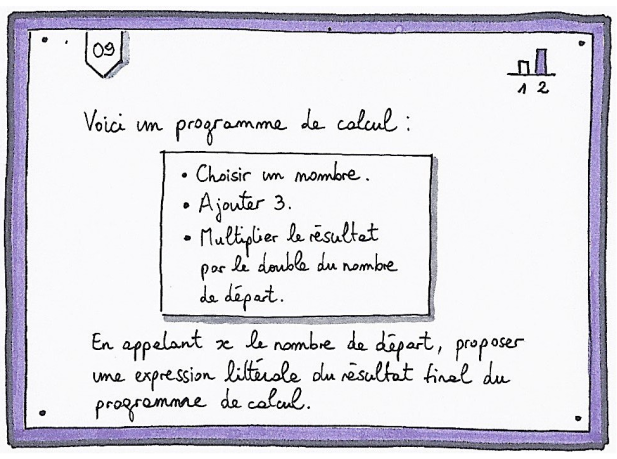 09
1 2
Voici un programme de calcul :
• Choisir un nombre.
• Ajouter 3.
• Multiplier le résultat
par le double du nombre
de départ.
En appelant x le nombre de départ, proposer
une expression littérale du résultat final du
programme de calcul.